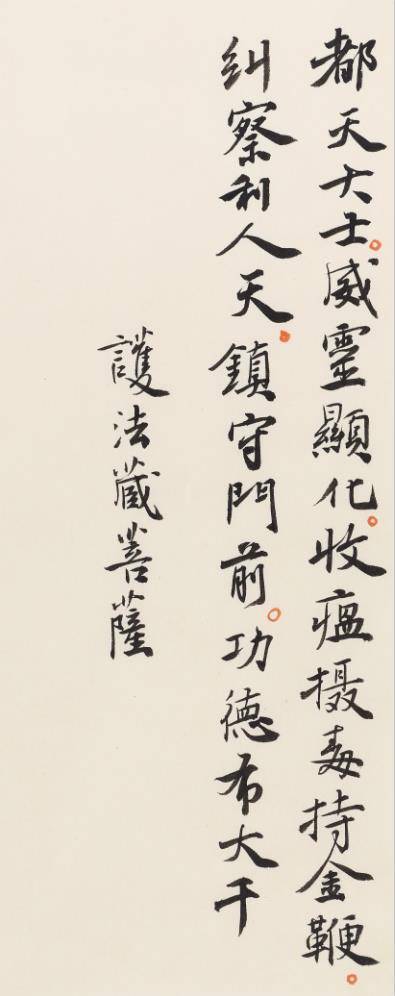 都天大士。威靈顯化。收瘟摄毒持金鞭。
糾察利人天。鎮守門前。功德布大千
護法藏菩薩